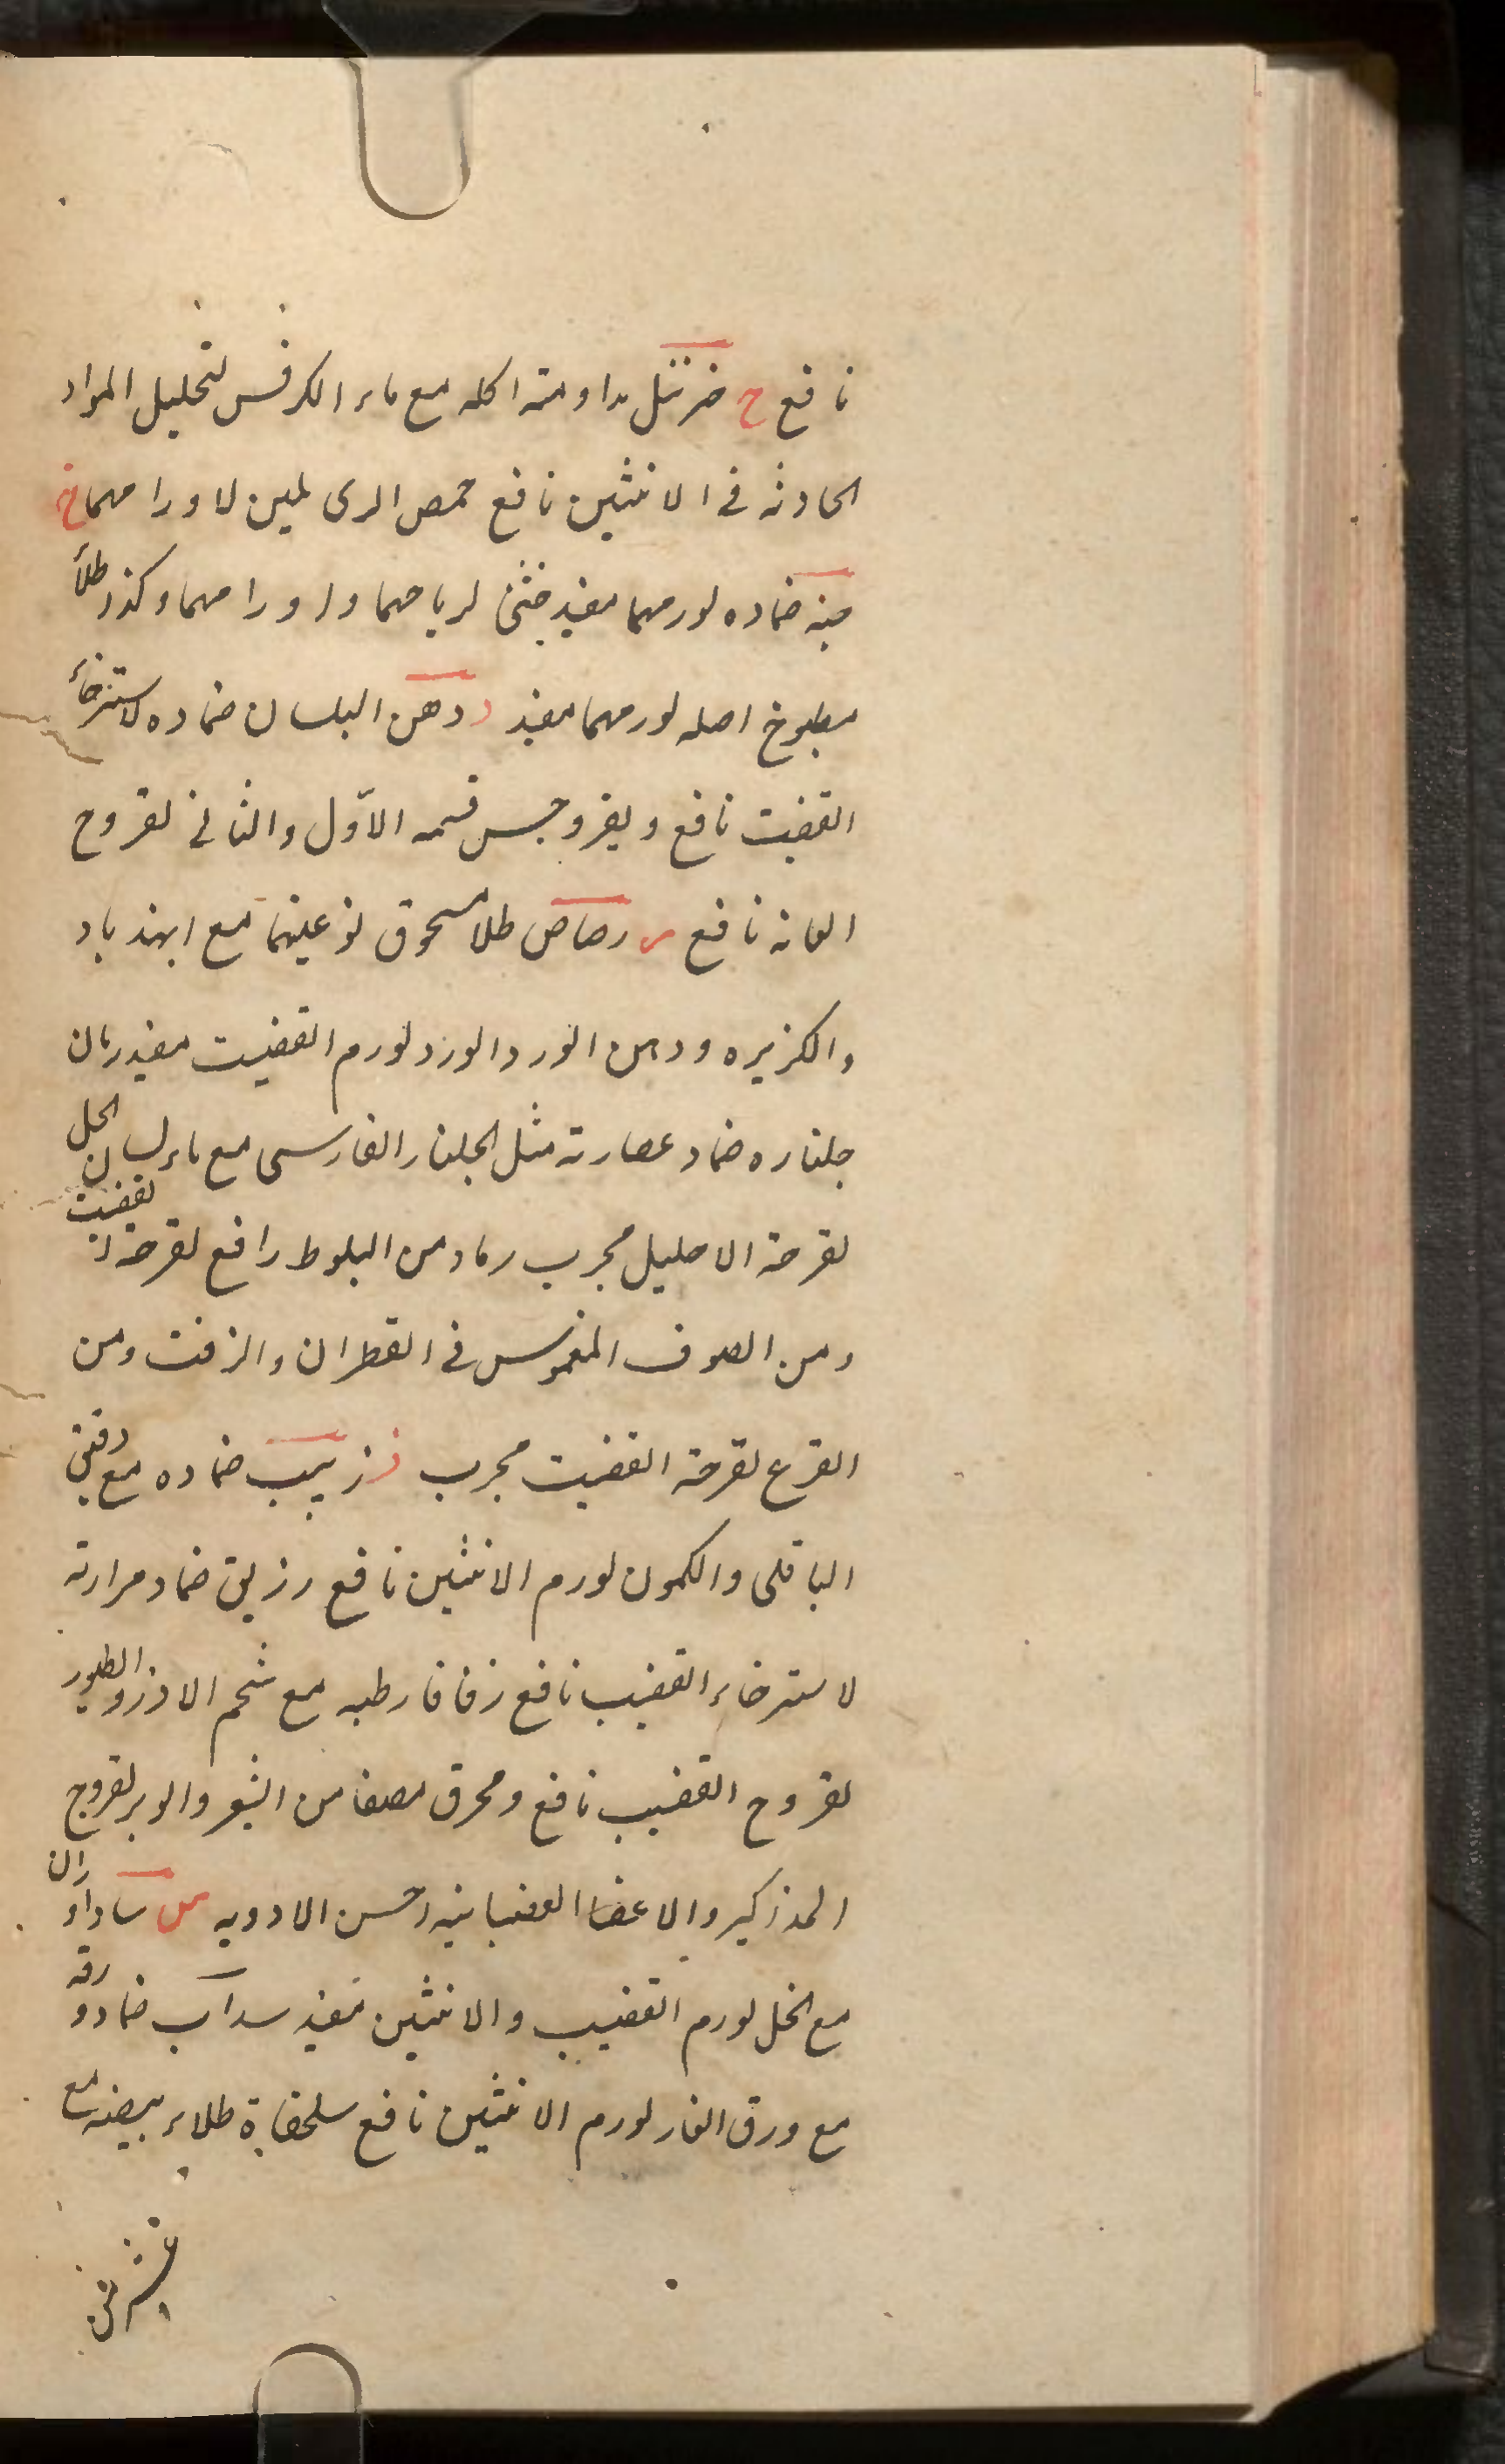 نافع ح خرنبل مداومته اكله مع ماء الكرفس لتحليل المواد
الحادثه فى الانثيين نافع حمص البرى لمين لاورامهما خ
ضماده لورمهما مفيد خنثى لرياحهما واورامهما وكذا طلأ
مطبوخ اصله لورمهما مفيد د دهن البلسان ضماده لاسترخأ
القضيب نافع ويفروجس قسمه الاول والثانى لقروح
العانه نافع ر رصاص طلا مسحوق نوعيهما مع الهندباد
والكزبره ودهن الورد الورد لورم القضيب مفيد رمان
جلناره ضماد عصارته مثل الجلنار الفارسى مع ماء لسان الحمل
لقرحة الاحليل مجرب رماد من البلوط رافع لقرحة القضيب
ومن الصوف المغموس فى القطران والزفت ومن
القرع لقرحة القضيب مجرب ز زبيب ضماده مع دقيق
الباقلى والكمون لورم الانثيين نافع ضماد مرارته
لاسترخاء القضيب نافع زفافا رطبه مع شحم الاوز والطيور
لقروح القضيب نافع ومحرق مصفا من الشعر والوبر لقروح
المذاكير والاعضا العصبانيه احسن الادويه س ساداوران
مع الخل لورم القضيب والانثيين مفيد سداب ضماد ورقه
مع ورق الغار لورم الانثيين نافع سلحفاة طلاء بيضه مع